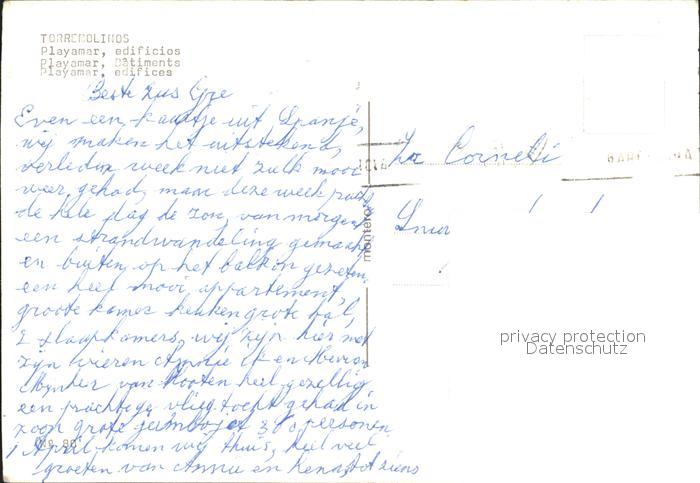 TORREMOLINOS
Playamar, edificios
Playamar, Bâtiments
Playamar, edifices
Beste zus
Even een kaartje uit Spanje,
wij maken het uitstekend,
verleden week niet zulk mooi
weer gehad, maar deze week
de hele dag de zon, van morgen
een strandwandeling gemaakt
en buiten op het balkon gezeten,
een heel mooi appartement,
groote kamer keuken grote hal,
2 slaapkamers, wij zijn hier met
zijn vieren Annie ik en Mevrouw
Mynheer van Hooten heel gezellig
een prachtige vliegtocht gehad in
zoon grote jumbojet 380 personen
1 April komen wij thuis, heel veel
groeten van Annie en tot ziens
Nº 80
montero
Zr Cornelli
BARCELONA
privacy protection
Datenschutz